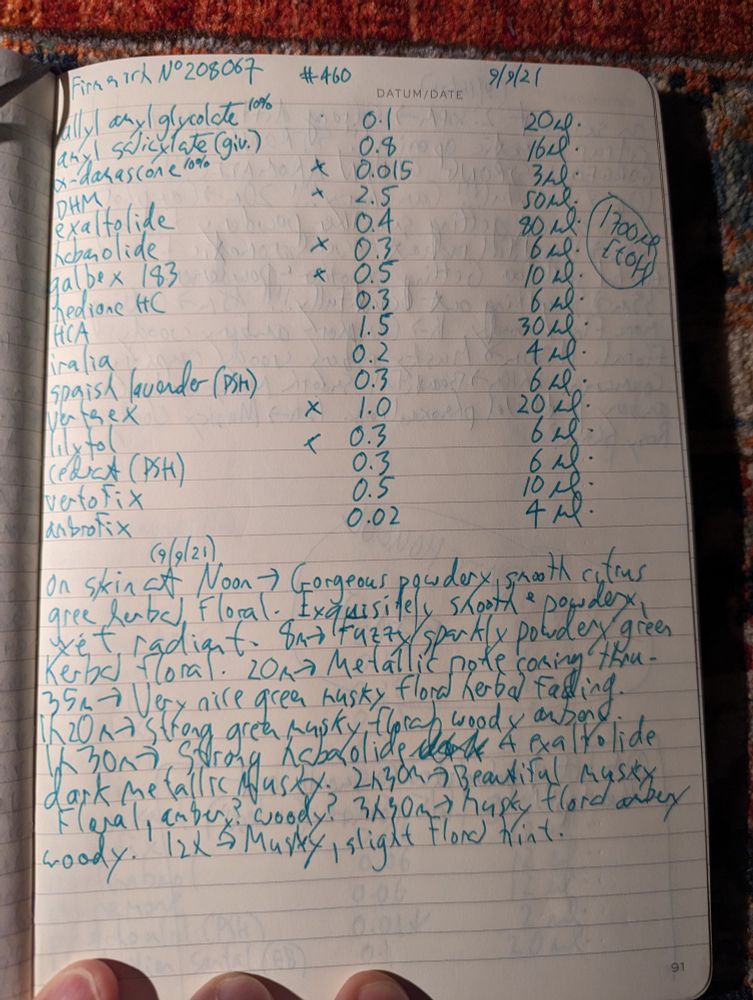 Firmarch Nº 208067 #460 9/9/21
DATUM/DATE
allyl amyl glycolate 10% 0.1 20µl.
amyl salicylate (giv.) 0.8 16µl.
α-damascone 10% x 0.015 3µl.
DHM x 2.5 50µl.
exaltolide 0.4 80µl.
habanolide x 0.3 6µl.
galbex 183 x 0.5 10µl.
hedione HC 0.3 6µl.
HCA 1.5 30µl.
iralia 0.2 4µl.
spaish lavender (PSH) 0.3 6µl.
vertenex x 1.0 20µl.
lilytol x 0.3 6µl.
cedrat (PSH) 0.3 6µl.
vertofix 0.5 10µl.
ambrofix 0.02 4µl.
1300µl
EtOH
(9/9/21)
On skin at Noon → Gorgeous powdery, smooth citrus
green herbal floral. Exquisitely smooth & powdery,
yet radiant. 8m → Fuzzy/sparkly powdery green
herbal floral. 20m → Metallic note coming thru.
35m → Very nice green musky floral herbal fading.
1h20m → Strong green musky floral, woody ambery.
1h30m → Strong habanolide & exaltolide
dark metallic musky. 2h30m → Beautiful musky
floral, ambery? woody? 3h30m → Musky floral ambery
woody. 12h → Musky, slight floral hint.
91